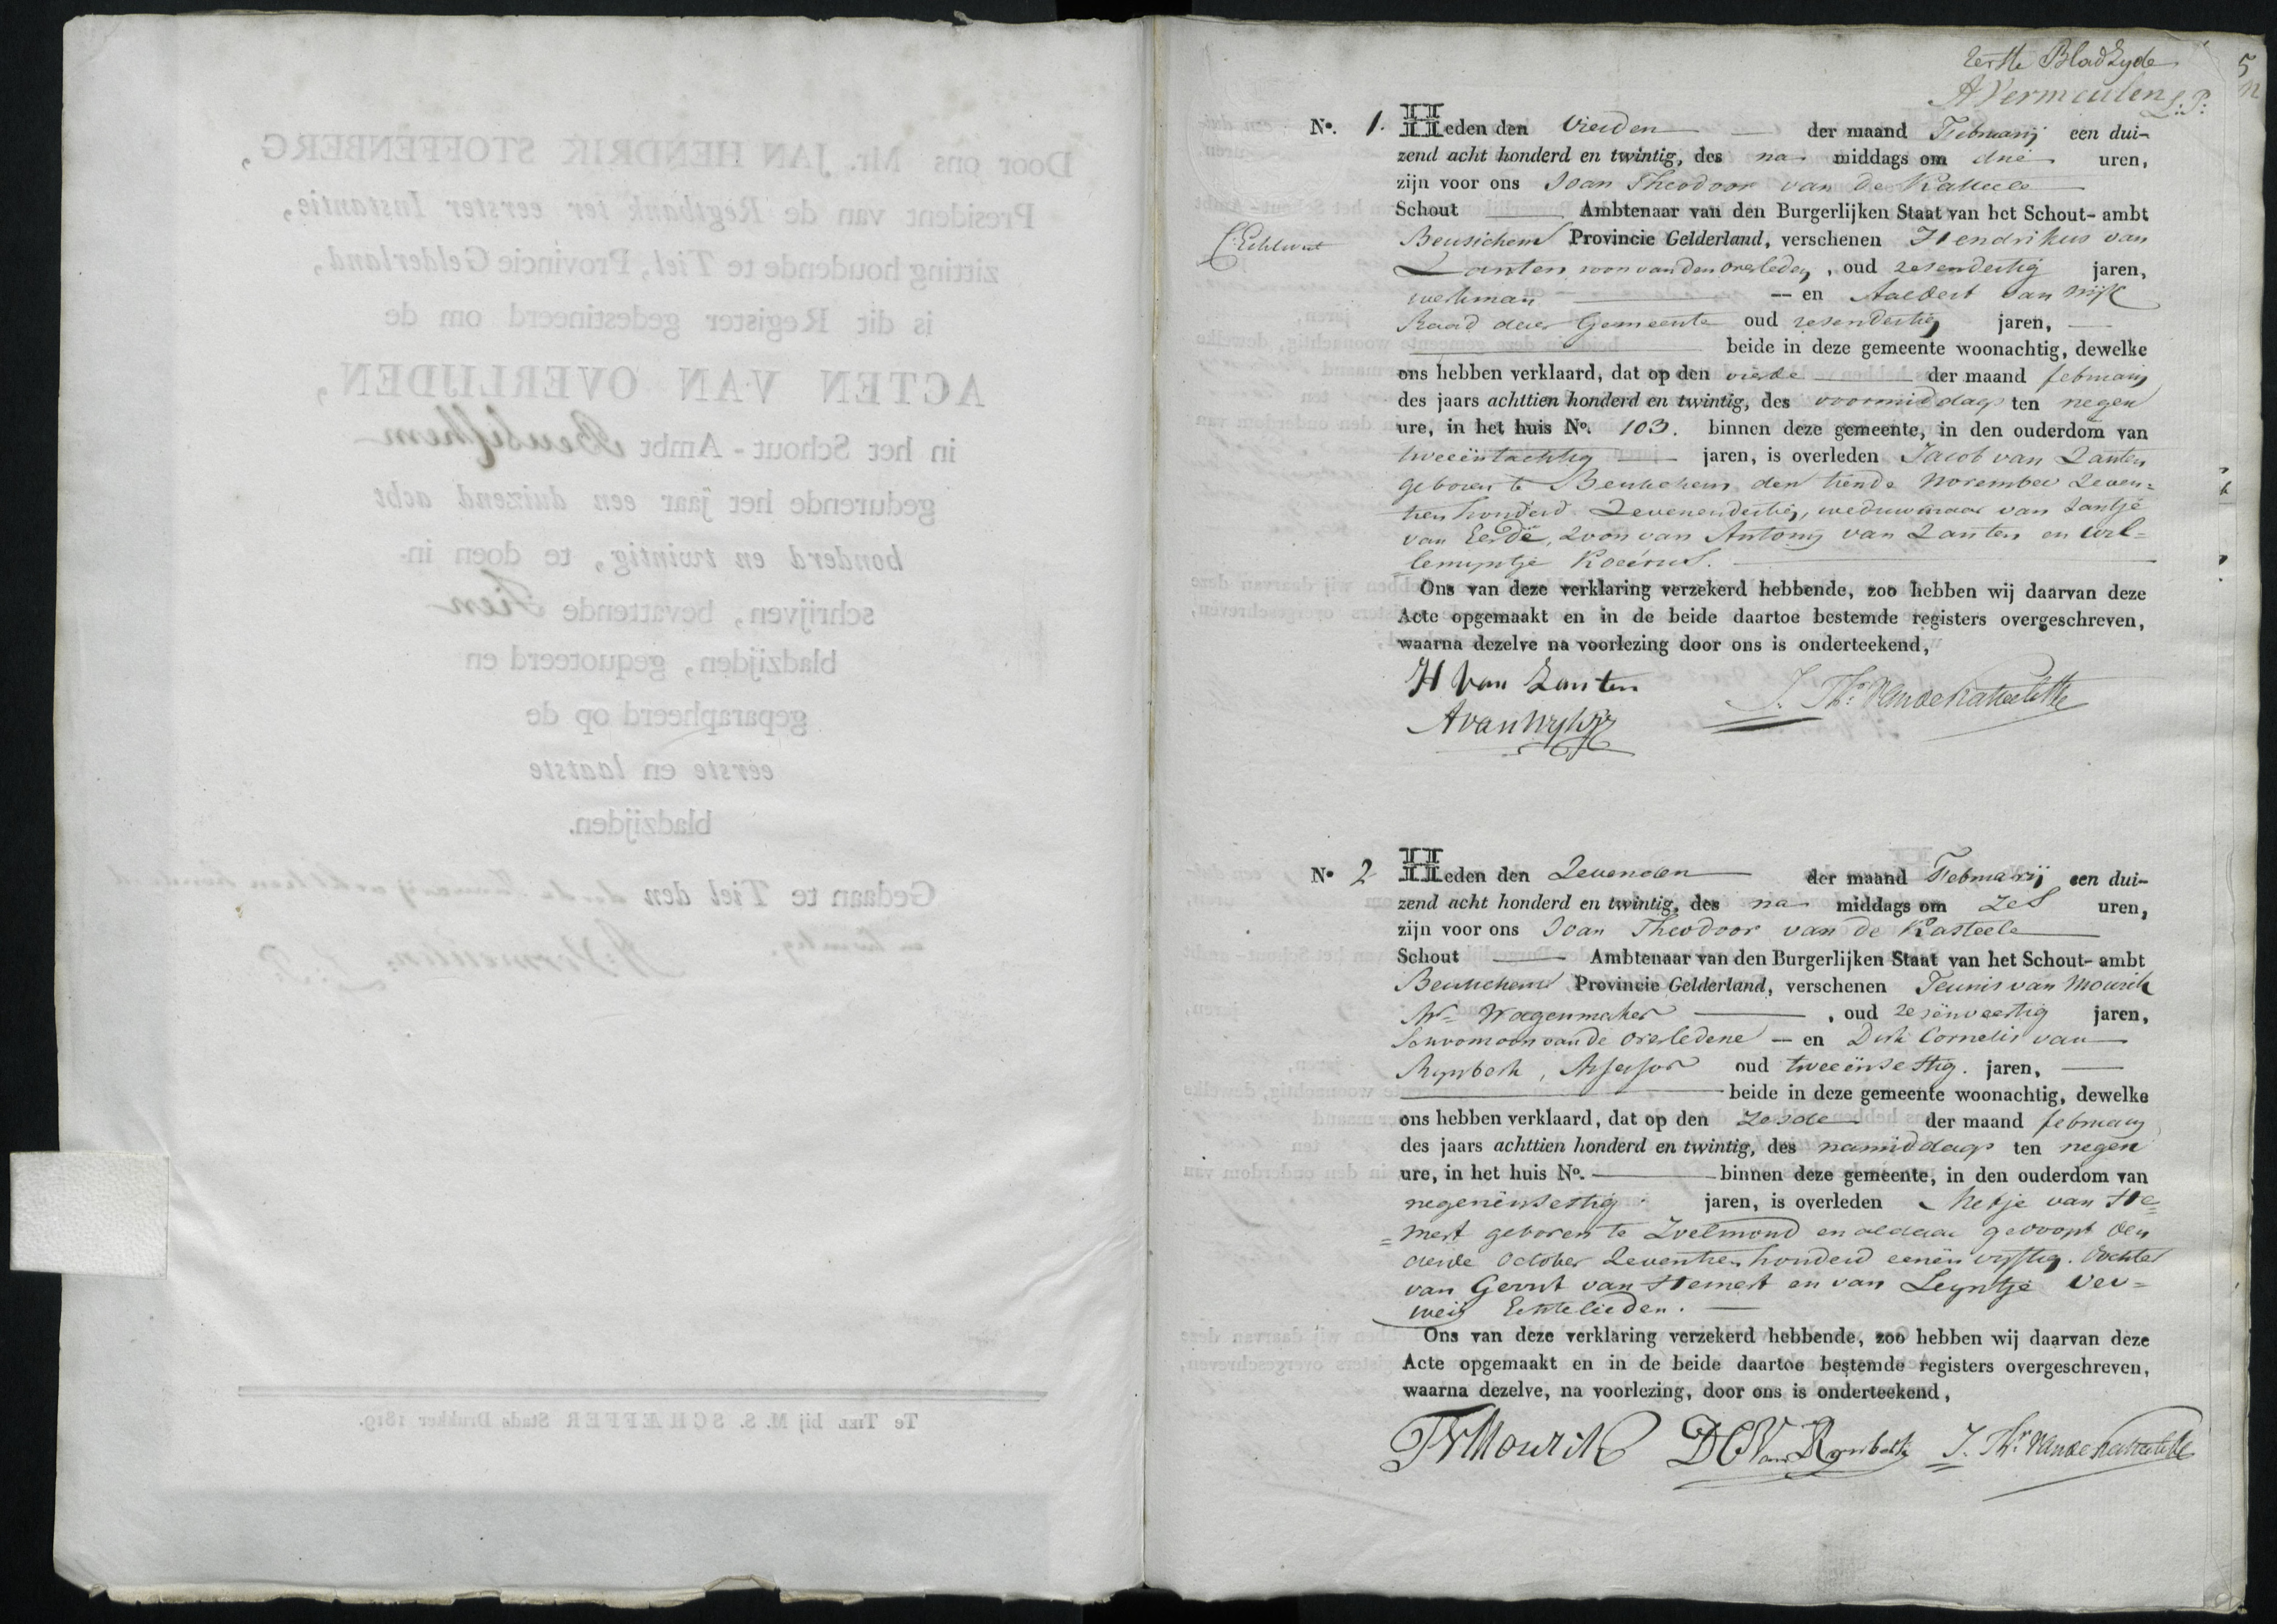 Eerste Bladzyde
A Vermeulen L. P.
5
N°. 1. Heden den Vierden der maand Februarij een dui-
zend acht honderd en twintig, des na middags om drie uren,
zijn voor ons Joan Theodoor van de Kasteele
Schout Ambtenaar van den Burgerlijken Staat van het Schout-ambt
Beusichem Provincie Gelderland, verschenen Hendrikus van
Zanten zoon van den overleden, oud zesendertig jaren,
werkman en Aaldert van Wijk
Raad der Gemeente oud zesendertig jaren,
beide in deze gemeente woonachtig, dewelke
ons hebben verklaard, dat op den vierde der maand februarij
des jaars achttien honderd en twintig, des voormiddags ten negen
ure, in het huis N°. 103. binnen deze gemeente, in den ouderdom van
tweeëntachtig jaren, is overleden Jacob van Zanten
geboren te Beusichem den tiende November Zeven=
tien honderd Zevenendertig, weduwnaar van Jantje
van Eerde, Zoon van Antony van Zanten en Wil=
lemyntje
Ons van deze verklaring verzekerd hebbende, zoo hebben wij daarvan deze
Acte opgemaakt en in de beide daartoe bestemde registers overgeschreven,
waarna dezelve na voorlezing door ons is onderteekend,
H van Zanten
J. Th. van de Kasteele
A van Wyk
N° 2 Heden den Zevenden der maand Februarij een dui-
zend acht honderd en twintig, des na middags om Zes uren,
zijn voor ons Joan Theodoor van de Kasteele
Schout Ambtenaar van den Burgerlijken Staat van het Schout-ambt
Beusichem Provincie Gelderland, verschenen Teunis van Mourik
Wagenmaker, oud zesënveertig jaren,
Schoonzoon van de Overledene en Dirk Cornelis van
Rynbeek, Assessor oud tweeënsestig. jaren,
beide in deze gemeente woonachtig, dewelke
ons hebben verklaard, dat op den Zesde der maand februarij
des jaars achttien honderd en twintig, des namiddags ten negen
ure, in het huis N°. binnen deze gemeente, in den ouderdom van
negenënsestig jaren, is overleden van He=
=mert geboren te Zoelmond en aldaar gedoopt den
derde October Zeventien honderd eenënvyftig. dochter
van Gerrit van Hemert en van Leyntje Ver=
weij Echtelieden.
Ons van deze verklaring verzekerd hebbende, zoo hebben wij daarvan deze
Acte opgemaakt en in de beide daartoe bestemde registers overgeschreven,
waarna dezelve, na voorlezing, door ons is onderteekend,
TVMourik DC Van Rynbeek J. Th. van de Kasteele